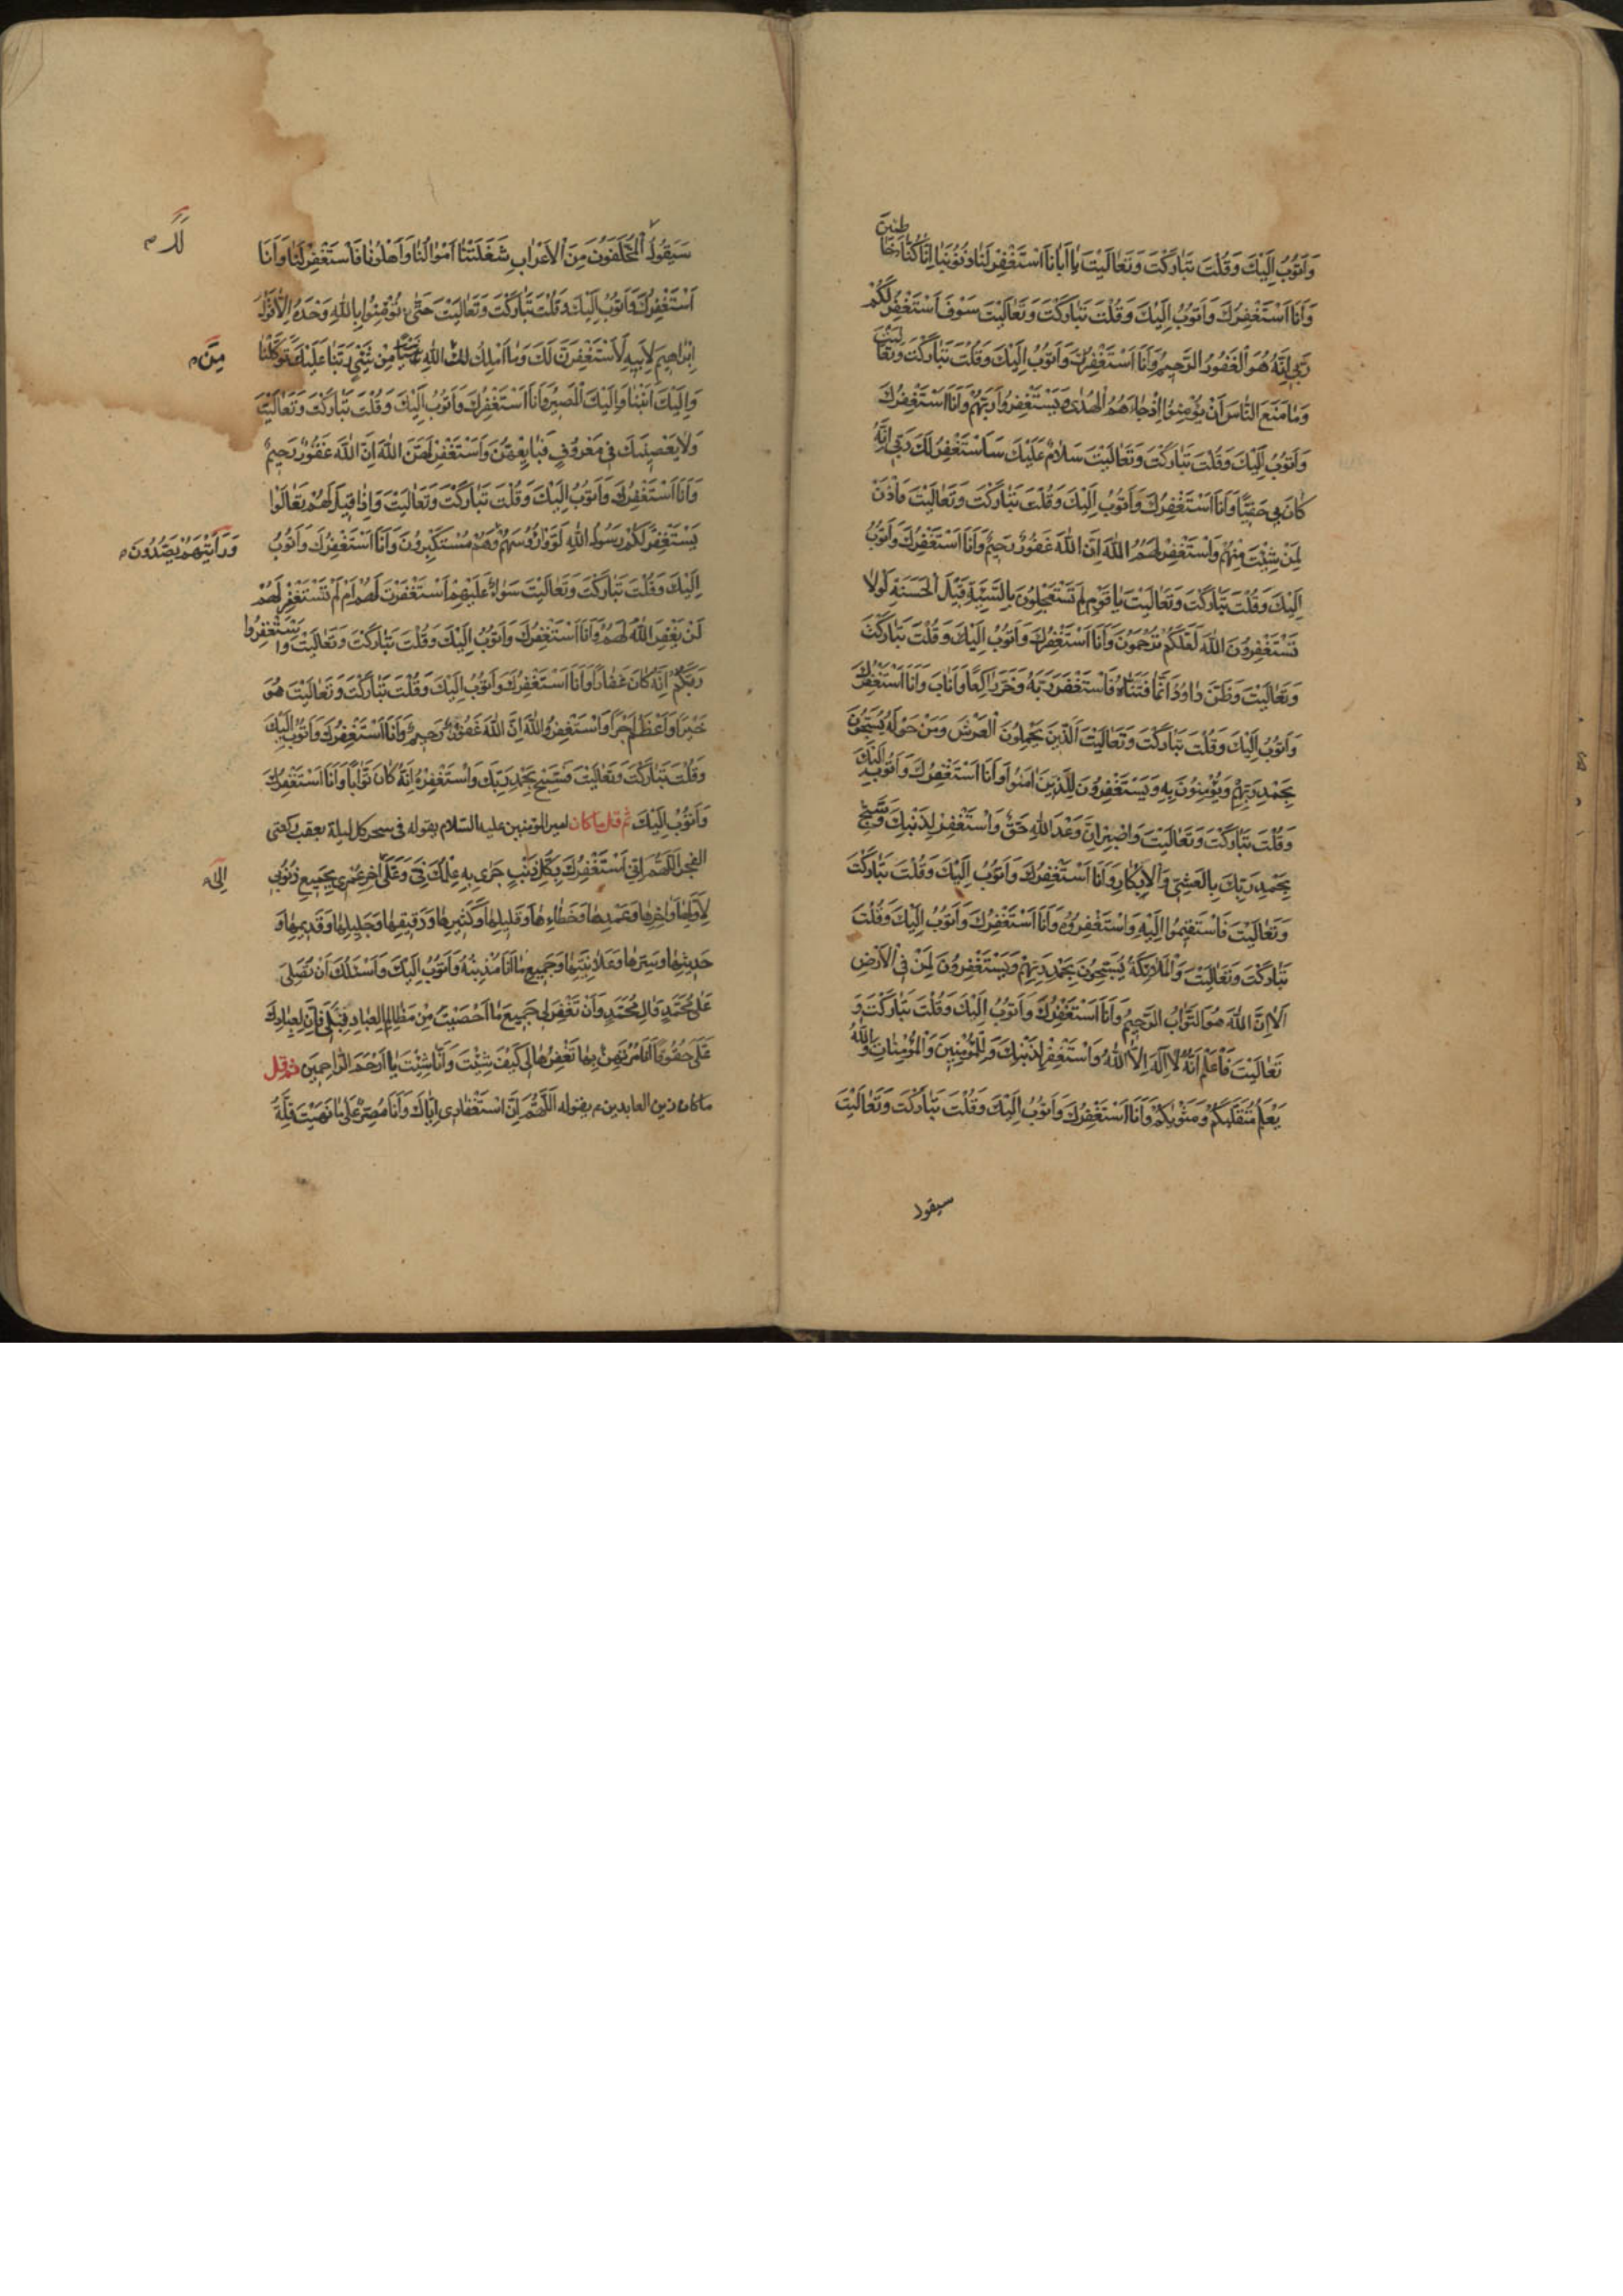 وَاَتُوبُ اِلَيْكَ وَقُلْتَ تَبٰارَكْتَ وَتَعٰالَيْتَ يٰا اَبٰانَا اسْتَغْفِرْ لَنٰا ذُنُوبَنٰا اِنّٰا كُنّٰا خٰاطِئينَ
وَاَنَا اَسْتَغْفِرُكَ وَاَتُوبُ اِلَيْكَ وَقُلْتَ تَبٰارَكْتَ وَتَعٰالَيْتَ سَوْفَ اَسْتَغْفِرُ لَكُمْ
رَبّي اِنَّهُ هُوَ الْغَفُورُ الرَّحيمُ وَاَنَا اَسْتَغْفِرُكَ وَاَتُوبُ اِلَيْكَ وَقُلْتَ تَبٰارَكْتَ وَتَعٰالَيْتَ
وَمٰا مَنَعَ النّٰاسَ اَنْ يُؤْمِنُوا اِذْ جٰاءَهُمُ الْهُدٰى وَيَسْتَغْفِرُوا رَبَّهُمْ وَاَنَا اَسْتَغْفِرُكَ
وَاَتُوبُ اِلَيْكَ وَقُلْتَ تَبٰارَكْتَ وَتَعٰالَيْتَ سَلٰامٌ عَلَيْكَ سَاَسْتَغْفِرُ لَكَ رَبّي اِنَّهُ
كٰانَ بي حَفِيًّا وَاَنَا اَسْتَغْفِرُكَ وَاَتُوبُ اِلَيْكَ وَقُلْتَ تَبٰارَكْتَ وَتَعٰالَيْتَ فَأْذَنْ
لِمَنْ شِئْتَ مِنْهُمْ وَاسْتَغْفِرْ لَهُمُ اللّٰهَ اِنَّ اللّٰهَ غَفُورٌ رَحيمٌ وَاَنَا اَسْتَغْفِرُكَ وَاَتُوبُ
اِلَيْكَ وَقُلْتَ تَبٰارَكْتَ وَتَعٰالَيْتَ يٰا قَوْمِ لِمَ تَسْتَعْجِلُونَ بِالسَّيِّئَةِ قَبْلَ الْحَسَنَةِ لَوْلٰا
تَسْتَغْفِرُونَ اللّٰهَ لَعَلَّكُمْ تُرْحَمُونَ وَاَنَا اَسْتَغْفِرُكَ وَاَتُوبُ اِلَيْكَ وَقُلْتَ تَبٰارَكْتَ
وَتَعٰالَيْتَ وَظَنَّ دٰاوُدُ اَنَّمٰا فَتَنّٰاهُ فَاسْتَغْفَرَ رَبَّهُ وَخَرَّ رٰاكِعًا وَاَنٰابَ وَاَنَا اَسْتَغْفِرُكَ
وَاَتُوبُ اِلَيْكَ وَقُلْتَ تَبٰارَكْتَ وَتَعٰالَيْتَ اَلَّذينَ يَحْمِلُونَ الْعَرْشَ وَمَنْ حَوْلَهُ يُسَبِّحُونَ
بِحَمْدِ رَبِّهِمْ وَيُؤْمِنُونَ بِهِ وَيَسْتَغْفِرُونَ لِلَّذينَ اٰمَنُوا وَاَنَا اَسْتَغْفِرُكَ وَاَتُوبُ اِلَيْكَ
وَقُلْتَ تَبٰارَكْتَ وَتَعٰالَيْتَ وَاصْبِرْ اِنَّ وَعْدَ اللّٰهِ حَقٌّ وَاسْتَغْفِرْ لِذَنْبِكَ وَسَبِّحْ
بِحَمْدِ رَبِّكَ بِالْعَشِيِّ وَالْاِبْكٰارِ وَاَنَا اَسْتَغْفِرُكَ وَاَتُوبُ اِلَيْكَ وَقُلْتَ تَبٰارَكْتَ
وَتَعٰالَيْتَ فَاسْتَقيمُوا اِلَيْهِ وَاسْتَغْفِرُوهُ وَاَنَا اَسْتَغْفِرُكَ وَاَتُوبُ اِلَيْكَ وَقُلْتَ
تَبٰارَكْتَ وَتَعٰالَيْتَ وَالْمَلٰائِكَةُ يُسَبِّحُونَ بِحَمْدِ رَبِّهِمْ وَيَسْتَغْفِرُونَ لِمَنْ فِي الْاَرْضِ
اَلٰا اِنَّ اللّٰهَ هُوَ التَّوّٰابُ الرَّحيمُ وَاَنَا اَسْتَغْفِرُكَ وَاَتُوبُ اِلَيْكَ وَقُلْتَ تَبٰارَكْتَ وَ
تَعٰالَيْتَ فَاعْلَمْ اَنَّهُ لٰا اِلٰهَ اِلَّا اللّٰهُ وَاسْتَغْفِرْ لِذَنْبِكَ وَلِلْمُؤْمِنينَ وَالْمُؤْمِنٰاتِ وَاللّٰهُ
يَعْلَمُ مُتَقَلَّبَكُمْ وَمَثْوٰيكُمْ وَاَنَا اَسْتَغْفِرُكَ وَاَتُوبُ اِلَيْكَ وَقُلْتَ تَبٰارَكْتَ وَتَعٰالَيْتَ
سيقول
سَيَقُولُ الْمُخَلَّفُونَ مِنَ الْاَعْرٰابِ شَغَلَتْنٰا اَمْوٰالُنٰا وَاَهْلُونٰا فَاسْتَغْفِرْ لَنٰا وَاَنَا
اَسْتَغْفِرُكَ وَاَتُوبُ اِلَيْكَ وَقُلْتَ تَبٰارَكْتَ وَتَعٰالَيْتَ حَتّٰى تُؤْمِنُوا بِاللّٰهِ وَحْدَهُ اِلّٰا قَوْلَ
اِبْرٰاهيمَ لِاَبيهِ لَاَسْتَغْفِرَنَّ لَكَ وَمٰا اَمْلِكُ لَكَ مِنَ اللّٰهِ مِنْ شَيْءٍ رَبَّنٰا عَلَيْكَ تَوَكَّلْنٰا
مِنَ م
وَاِلَيْكَ اَنَبْنٰا وَاِلَيْكَ الْمَصيرُ وَاَنَا اَسْتَغْفِرُكَ وَاَتُوبُ اِلَيْكَ وَقُلْتَ تَبٰارَكْتَ وَتَعٰالَيْتَ
وَلٰا يَعْصينَكَ في مَعْرُوفٍ فَبٰايِعْهُنَّ وَاسْتَغْفِرْ لَهُنَّ اللّٰهَ اِنَّ اللّٰهَ غَفُورٌ رَحيمٌ
وَاَنَا اَسْتَغْفِرُكَ وَاَتُوبُ اِلَيْكَ وَقُلْتَ تَبٰارَكْتَ وَتَعٰالَيْتَ وَاِذٰا قيلَ لَهُمْ تَعٰالَوْا
يَسْتَغْفِرْ لَكُمْ رَسُولُ اللّٰهِ لَوَّوْا رُؤُسَهُمْ وَهُمْ مُسْتَكْبِرُونَ وَاَنَا اَسْتَغْفِرُكَ وَاَتُوبُ
وَرَاَيْتَهُمْ يَصُدُّونَ م
اِلَيْكَ وَقُلْتَ تَبٰارَكْتَ وَتَعٰالَيْتَ سَوٰاءٌ عَلَيْهِمْ اَسْتَغْفَرْتَ لَهُمْ اَمْ لَمْ تَسْتَغْفِرْ لَهُمْ
لَنْ يَغْفِرَ اللّٰهُ لَهُمْ وَاَنَا اَسْتَغْفِرُكَ وَاَتُوبُ اِلَيْكَ وَقُلْتَ تَبٰارَكْتَ وَتَعٰالَيْتَ وَاسْتَغْفِرُوا
رَبَّكُمْ اِنَّهُ كٰانَ غَفّٰارًا وَاَنَا اَسْتَغْفِرُكَ وَاَتُوبُ اِلَيْكَ وَقُلْتَ تَبٰارَكْتَ وَتَعٰالَيْتَ هُوَ
خَيْرًا وَاَعْظَمَ اَجْرًا وَاسْتَغْفِرُوا اللّٰهَ اِنَّ اللّٰهَ غَفُورٌ رَحيمٌ وَاَنَا اَسْتَغْفِرُكَ وَاَتُوبُ اِلَيْكَ
وَقُلْتَ تَبٰارَكْتَ وَتَعٰالَيْتَ فَسَبِّحْ بِحَمْدِ رَبِّكَ وَاسْتَغْفِرْهُ اِنَّهُ كٰانَ تَوّٰابًا وَاَنَا اَسْتَغْفِرُكَ
وَاَتُوبُ اِلَيْكَ ثم قل ما كان امير المؤمنين عليه السلام يقوله في سحر كل ليلة بعقب ركعتى
الفجر اَللّٰهُمَّ اِنّي اَسْتَغْفِرُكَ بِكُلِّ ذَنْبٍ جَرٰى بِهِ عِلْمُكَ فِيَّ وَعَلَيَّ اٰخِرِ عُمْري بِجَميعِ ذُنُوبي
اِلٰى م
لِاَوَّلِهٰا وَاٰخِرِهٰا وَعَمْدِهٰا وَخَطٰاءِهٰا وَقَليلِهٰا وَكَثيرِهٰا وَدَقيقِهٰا وَجَليلِهٰا وَقَديمِهٰا وَ
حَديثِهٰا وَسِرِّهٰا وَعَلٰانِيَتِهٰا وَجَميعِ مٰا اَنَا مُذْنِبُهُ وَاَتُوبُ اِلَيْكَ وَاَسْئَلُكَ اَنْ تُصَلِّيَ
عَلٰى مُحَمَّدٍ وَاٰلِ مُحَمَّدٍ وَاَنْ تَغْفِرَ لي جَميعَ مٰا اَحْصَيْتَ مِنْ مَظٰالِمِ الْعِبٰادِ قِبَلي فَاِنَّ لِعِبٰادِكَ
عَلَيَّ حُقُوقًا اَنَا مُرْتَهَنٌ بِهٰا تَغْفِرُهٰا لي كَيْفَ شِئْتَ وَاَنّٰى شِئْتَ يٰا اَرْحَمَ الرّٰاحِمينَ ثم قل
ما كان زين العابدين م يقوله اَللّٰهُمَّ اِنَّ اسْتِغْفٰاري اِيّٰاكَ وَاَنَا مُصِرٌّ عَلٰى مٰا نَهَيْتَ قِلَّةُ